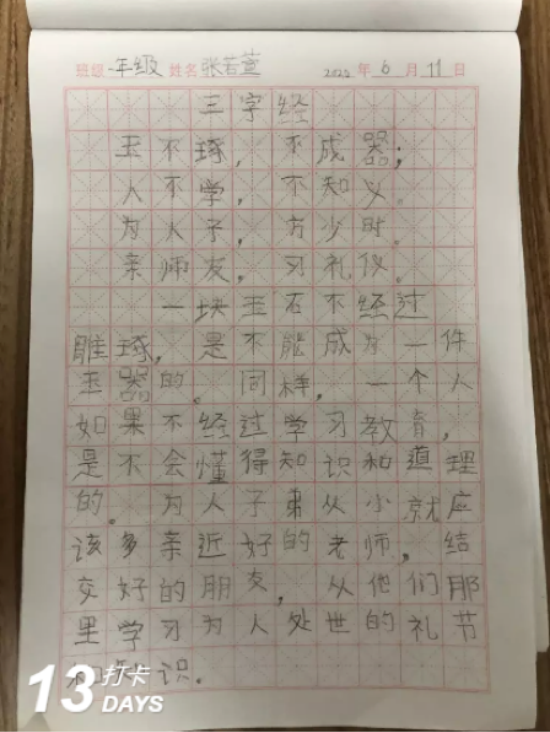 班级 一年级 姓名 张若萱 2022 年 6 月 11 日
三字经
玉不琢，不成器；
人不学，不知义。
为人子，方少时。
亲师友，习礼仪。
一块玉石不经过
雕琢，是不能成为一件
玉器的。同样，一个人
如果不经过学习教育，
是不会懂得知识和道理
的。为人子弟从小就应
该多亲近好的老师，结
交好的朋友，从他们那
里学习为人处世的礼节
和知识。
13 打卡
DAYS